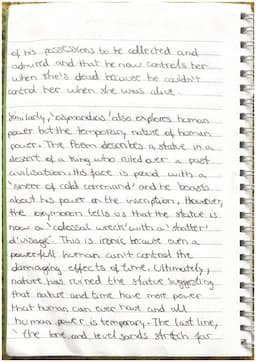 of his possessions to be collected and
admired and that he now controls her
when she's dead because he couldn't
control her when she was alive.
Similarly, 'Ozymandias' also explores human
power but the temporary nature of human
power. The Poem describes a statue in a
dessert of a king who ruled over a past
civilisation. His face is proud with a
'sneer of cold command' and he boasts
about his power on the inscription. However,
the oxymoron tells us that the statue is
now a 'colossal wreck' with a 'shatter'
d visage'. This is ironic because even a
powerfull human can't control the
damaging effects of time. Ultimately,
nature has ruined the statue suggesting
that nature and time have more power
that human can ever have and all
human power is temporary. The last line,
'the lone and level sands stretch far